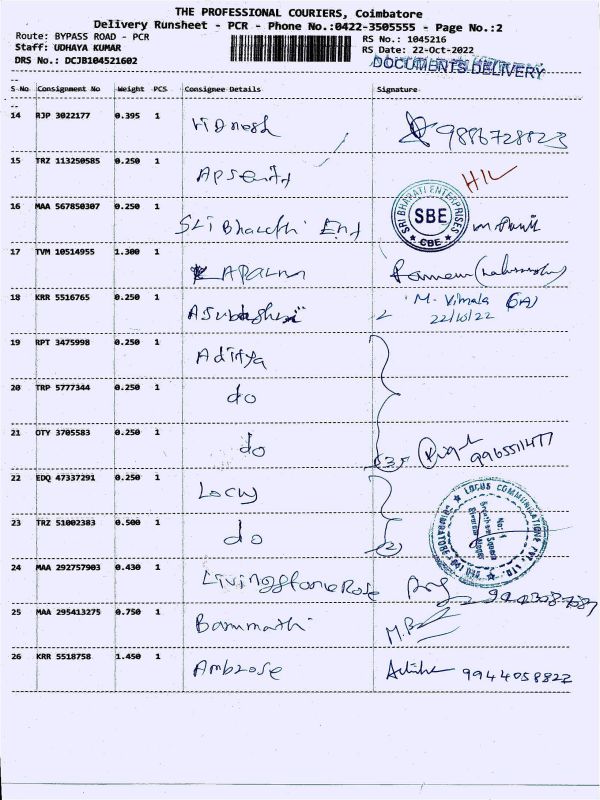 THE PROFESSIONAL COURIERS, Coimbatore
Delivery Runsheet - PCR - Phone No.:0422-3505555 - Page No.:2
Route: BYPASS ROAD - PCR
RS No.: 1045216
Staff: UDHAYA KUMAR
RS Date: 22-Oct-2022
DRS No.: DCJB104521602
DOCUMENTS DELIVERY
S No Consignment No Weight PCS Consignee Details Signature
14 RJP 3022177 0.395 1 Vignesh 9886728823
15 TRZ 113250585 0.250 1
16 MAA 567850307 0.250 1 Sri Bharathi Ent
SRI BHARATI ENTERPRISES
SBE
CBE
17 TVM 10514955 1.300 1 Aparna
18 KRR 5516765 0.250 1 M. Vimala
22/10/22
19 RPT 3475998 0.250 1 Aditya
20 TRP 5777344 0.250 1 do
21 OTY 3705583 0.250 1 do
(3)
22 EDQ 47337291 0.250 1 Locus
LOCUS COMMUNICATIONS PVT. LTD.
23 TRZ 51002383 0.500 1 do (2)
24 MAA 292757903 0.430 1 Livingstone Rose
25 MAA 295413275 0.750 1
26 KRR 5518758 1.450 1 Ambrose 9944058822